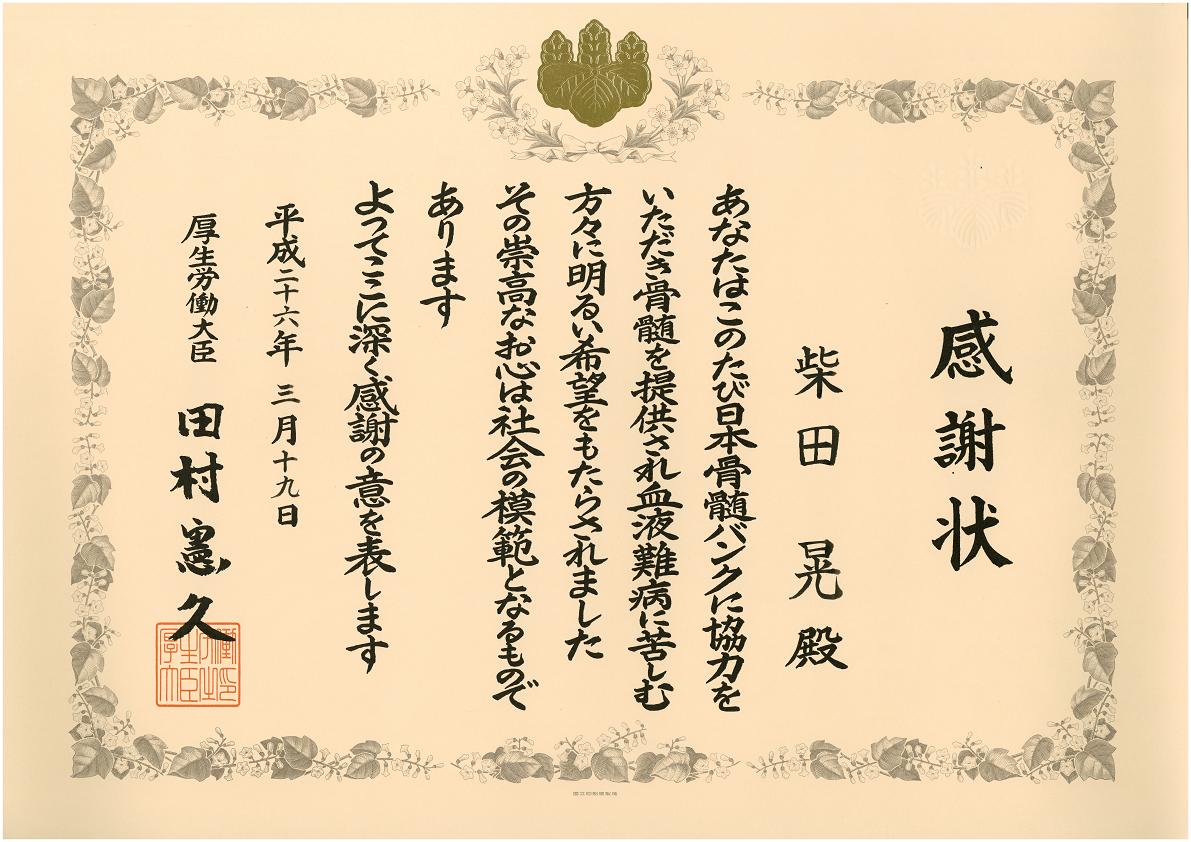 感謝状
柴田 晃 殿
あなたはこのたび日本骨髄バンクに協力を
いただき骨髄を提供され血液難病に苦しむ
方々に明るい希望をもたらされました
その崇高なお心は社会の模範となるもので
あります
よってここに深く感謝の意を表します
平成二十六年 三月十九日
厚生労働大臣 田村憲久